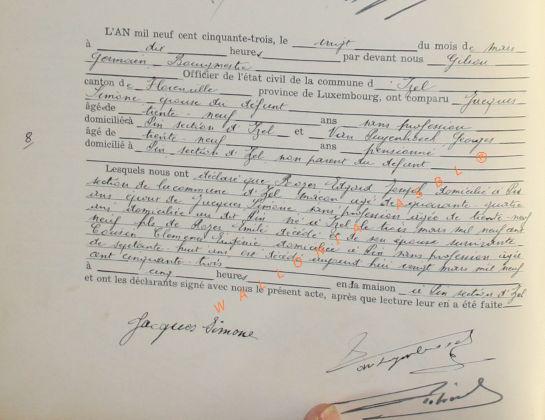 L'AN mil neuf cent cinquante-trois, le vingt du mois de mars
à dix heures par devant nous Gilson
Germain Bourgmestre
Officier de l'état civil de la commune d' Izel
canton de Florenville province de Luxembourg, ont comparu Jacques
Simone épouse du défunt
âgé de trente-neuf ans sans profession
domicilié à Pin section d'Izel et Van Puyenbroeck Georges
âgé de trente neuf ans pensionné
domicilié à Pin section d'Izel non parent du défunt
8
Lesquels nous ont déclaré que Rozet Edgard Joseph domicilié à Pin
section de la commune d'Izel maçon âgé de quarante quatre
ans époux de Jacques Simone, sans profession âgée de trente-neuf
ans domiciliée au dit Pin né à Izel le trois mars mil neuf cent
neuf fils de Rozet Emile décédé et de son épouse survivante
Cousin Clémence domiciliée à Pin sans profession âgée
de septante huit ans, est décédé aujourd'hui vingt mars mil neuf
cent cinquante trois
à cinq heures en la maison à Pin section d'Izel
et ont les déclarants signé avec nous le présent acte, après que lecture leur en a été faite.
WALLONIA ASBL ®
Jacques Simone